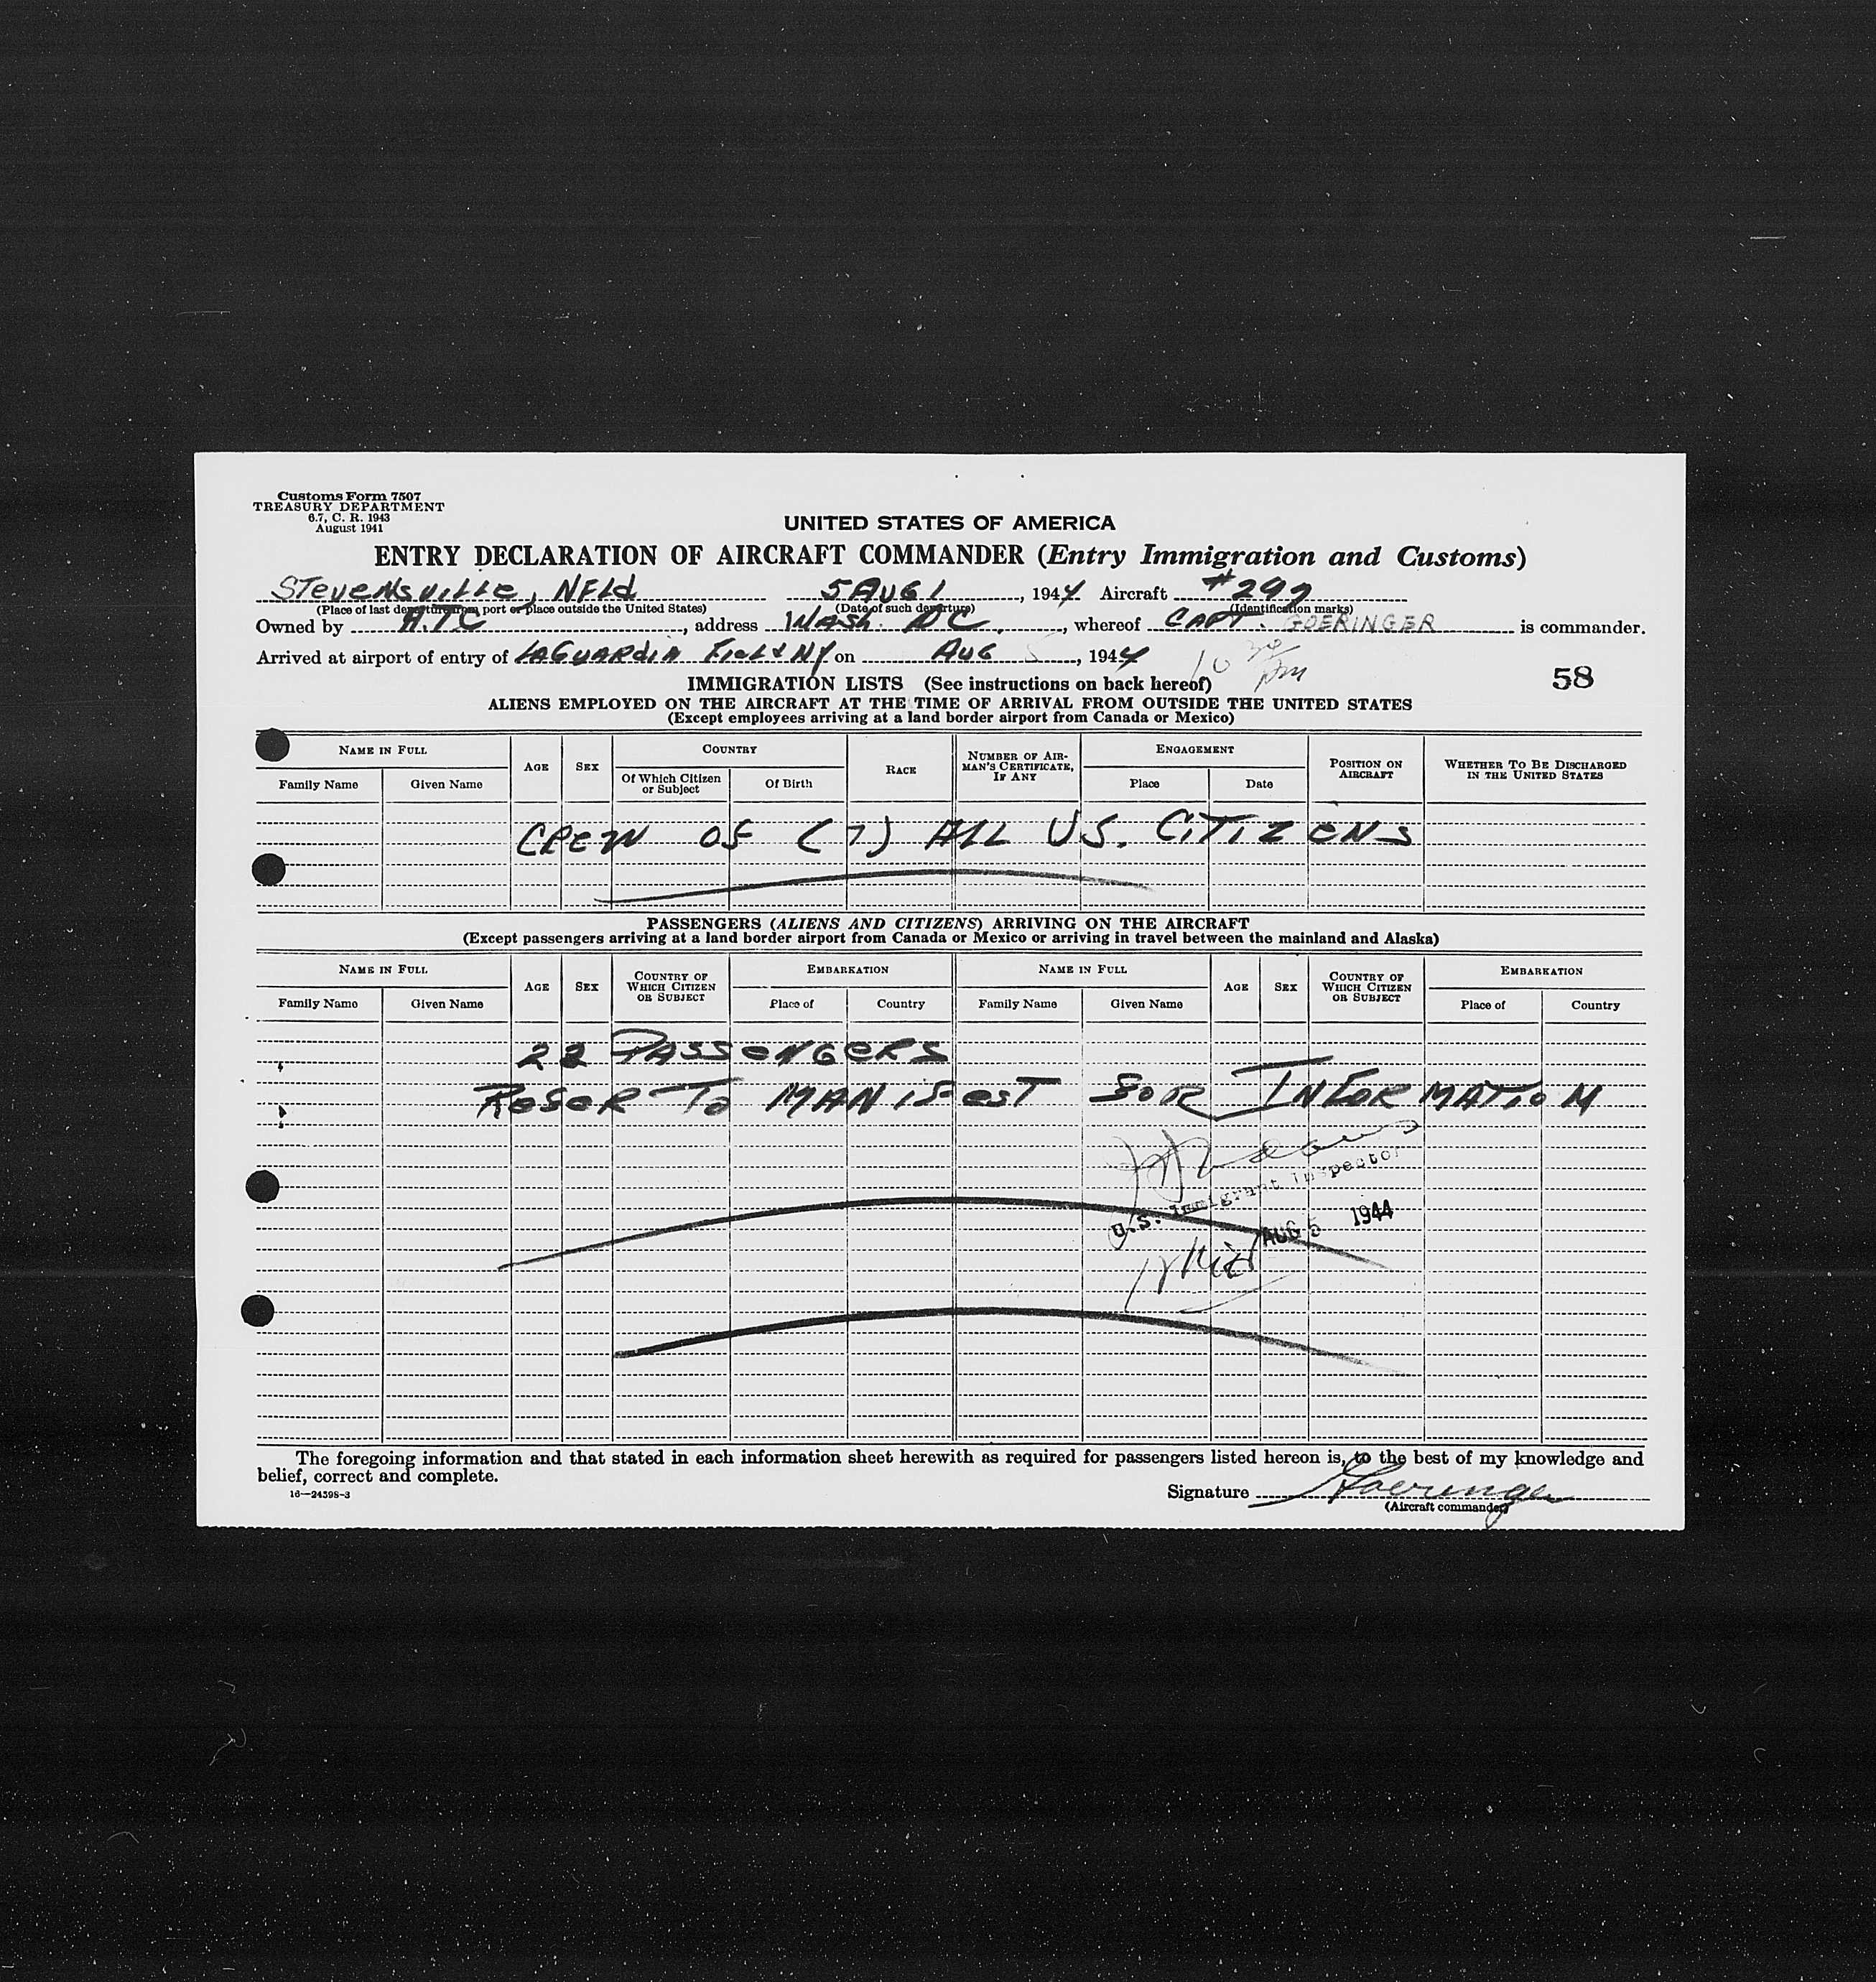 Customs Form 7507
TREASURY DEPARTMENT
6.7, C. R. 1943
August 1941
UNITED STATES OF AMERICA
ENTRY DECLARATION OF AIRCRAFT COMMANDER (Entry Immigration and Customs)
Stevensville, NFLd 5 AUG 1, 1944 Aircraft #297
(Place of last departure from port or place outside the United States) (Date of such departure) (Identification marks)
Owned by A.T.C., address WAsh. DC., whereof CAPT. GOERINGER is commander.
Arrived at airport of entry of LAGUARdiA FieLd NY on AUG 5, 1944 10 30 pm
58
IMMIGRATION LISTS (See instructions on back hereof)
ALIENS EMPLOYED ON THE AIRCRAFT AT THE TIME OF ARRIVAL FROM OUTSIDE THE UNITED STATES
(Except employees arriving at a land border airport from Canada or Mexico)
NAME IN FULL AGE SEX COUNTRY RACE NUMBER OF AIRMAN'S CERTIFICATE, IF ANY ENGAGEMENT POSITION ON AIRCRAFT WHETHER TO BE DISCHARGED IN THE UNITED STATES
Family Name Given Name Of Which Citizen or Subject Of Birth Place Date
CREW OF (7) ALL U.S. CITIZENS
PASSENGERS (ALIENS AND CITIZENS) ARRIVING ON THE AIRCRAFT
(Except passengers arriving at a land border airport from Canada or Mexico or arriving in travel between the mainland and Alaska)
NAME IN FULL AGE SEX COUNTRY OF WHICH CITIZEN OR SUBJECT EMBARKATION NAME IN FULL AGE SEX COUNTRY OF WHICH CITIZEN OR SUBJECT EMBARKATION
Family Name Given Name Place of Country Family Name Given Name Place of Country
22 PASSENGERS
ReFeR To MANiFesT FOR INFORMATION
U.S. Immigrant Inspector
AUG 5 1944
The foregoing information and that stated in each information sheet herewith as required for passengers listed hereon is, to the best of my knowledge and
belief, correct and complete.
16—24598-3
Signature Goeringer
(Aircraft commander)